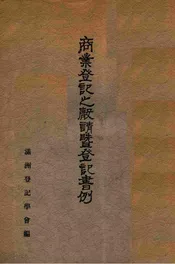 商業登記之厰請曁登記書例
滿洲登記學會編